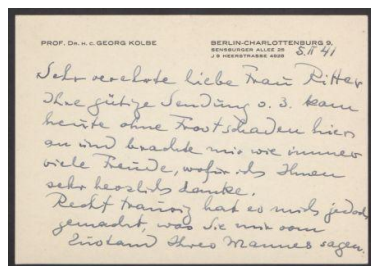 PROF. DR. H. C. GEORG KOLBE
BERLIN-CHARLOTTENBURG 9,
SENSBURGER ALLEE 25
J 9 HEERSTRASSE 4028
5. II 41
Sehr verehrte liebe Frau Ritter
Ihre gütige Sendung o. 3. kam
heute ohne Frostschaden hier
an und brachte mir wie immer
viele Freude, wofür ich Ihnen
sehr herzlich danke.
Recht traurig hat es mich jedoch
gemacht, was Sie mir vom
Zustand Ihres Mannes sagen.